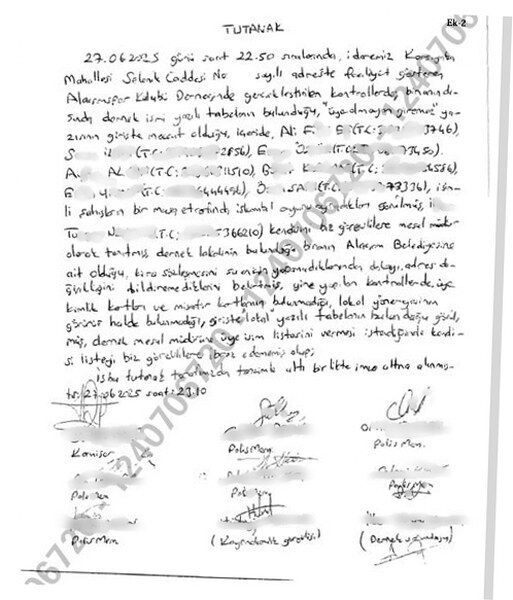 Ek-2
TUTANAK
27.06.2025 günü saat 22.50 sıralarında, idaremiz
Mahallesi Caddesi No sayılı adreste faaliyet gösteren
Alaçamspor Kulübü Derneğinde gerçekleştirilen kontrollerde, binanın dı-
şında dernek ismi yazılı tabelanın bulunduğu, "üye olmayan giremez" ya-
zısının girişte mevcut olduğu, içeride, Ali F E (T.C: 3746),
S (T.C: 2856), E Ö (T.C: 73450),
A AL (T.C: 11510), B K (T.C: 6584),
E (T.C: 444456), Ö SA (T.C: 73336), isim-
li şahısların bir masa etrafında iskambil oyunu oynadıkları görülmüş,
Tu N (T.C: 7366210) kendisini biz görevlilere mesul müdür
olarak tanıtmış, dernek lokalinin bulunduğu binanın Alaçam Belediyesine
ait olduğu, kira sözleşmesini yapmadıklarından dolayı, adres de-
ğişikliğini bildiremediklerini belirtmiş, yine yapılan kontrollerde, üye
kimlik kartları ve misafir kartlarının bulunmadığı, lokal yönergesinin
görünür halde bulunmadığı, girişte "lokal" yazılı tabelanın bulunduğu görül-
müş, dernek mesul müdürüne üye isim listesini vermesi istediğinde kendi-
si listeyi biz görevlilere ibraz edememiş olup;
İş bu tutanak tarafımızdan tanzimle altı birlikte imza altına alınmış-
tır. 27.06.2025 saat: 23.10
Komiser Polis Mem. Polis Mem.
Polis Mem Pol Mem Polis Mem
Polis Mem (Kaymakamlık görevlisi) (Dernek)
1240706720 - 1240706720 - 1240706720